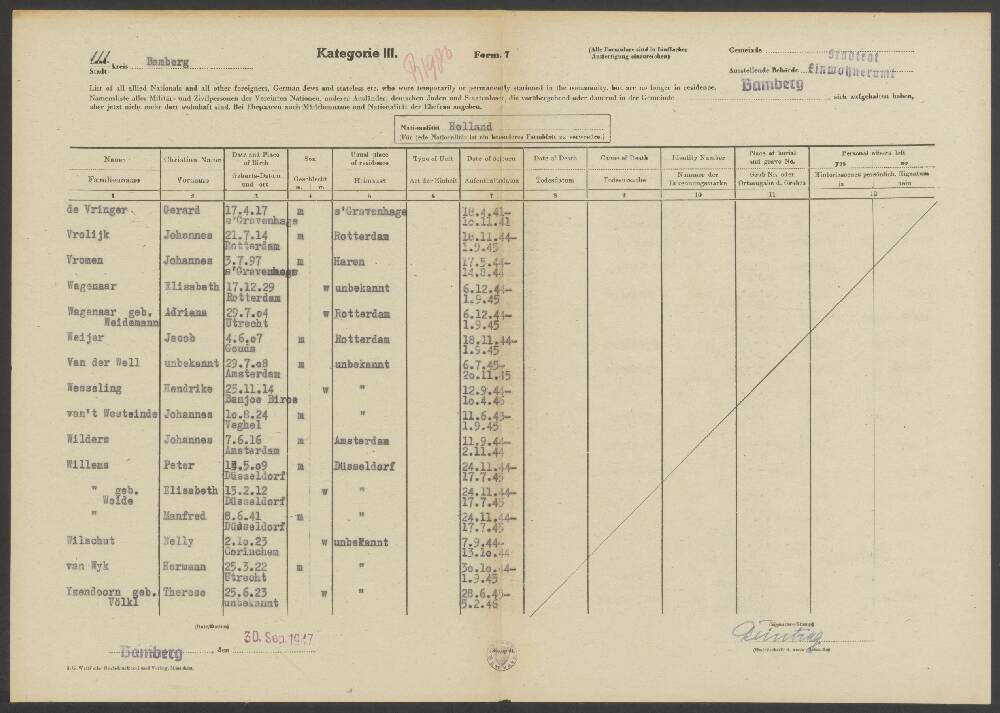 Stadt- kreis Bamberg
Kategorie III.
R1980
Form. 7
(Alle Formulare sind in fünffacher Ausfertigung einzureichen)
Gemeinde Stadtrat
Ausstellende Behörde Einwohneramt
Bamberg
List of all allied Nationals and all other foreigners, German Jews and stateless etc. who were temporarily or permanently stationed in the community, but are no longer in residence.
Namensliste aller Militär- und Zivilpersonen der Vereinten Nationen, anderer Ausländer, deutschen Juden und Staatenloser, die vorübergehend oder dauernd in der Gemeinde sich aufgehalten haben,
aber jetzt nicht mehr dort wohnhaft sind. Bei Ehepaaren auch Mädchenname und Nationalität der Ehefrau angeben.
Nationalität Holland
(Für jede Nationalität ist ein besonderes Formblatt zu verwenden.)
Name Christian Name Date and Place of Birth Sex Usual place of residence Type of Unit Date of sojourn Date of Death Cause of Death Identity Number Place of burial and grave No. Personal effects left yes no
Familienname Vorname Geburts-Datum und -ort Geschlecht m. w. Heimatort Art der Einheit Aufenthaltsdaten Todesdatum Todesursache Nummer der Erkennungsmarke Grab Nr. oder Ortsangabe d. Grabes Hinterlassenes persönlich. Eigentum ja nein
1 2 3 4 5 6 7 8 9 10 11 12
de Vringer Gerard 17.4.17 m s'Gravenhage 18.4.41-
s'Gravenhage 10.11.41
Vrolijk Johannes 21.7.14 m Rotterdam 18.11.44-
Rotterdam 1.9.45
Vromen Johannes 3.7.97 m Haren 17.5.44-
s'Gravenhage 14.8.44
Wagenaar Elisabeth 17.12.29 w unbekannt 6.12.44-
Rotterdam 1.9.45
Wagenaar geb. Adriana 29.7.o4 w Rotterdam 6.12.44-
Weidemann Utrecht 1.9.45
Weijer Jacob 4.6.o7 m Rotterdam 18.11.44-
Gouda 1.9.45
Van der Well unbekannt 29.7.o8 m unbekannt 6.7.45-
Amsterdam 2o.11.45
Wesseling Hendrike 25.11.14 w " 12.9.44-
Banjoe Biroe 1o.4.46
van't Westeinde Johannes 1o.8.24 m " 11.6.43-
Veghel 1.9.45
Wilders Johannes 7.6.16 m Amsterdam 11.9.44-
Amsterdam 2.11.44
Willems Peter 14.5.o9 m Düsseldorf 24.11.44-
Düsseldorf 17.7.45
" geb. Elisabeth 15.2.12 w " 24.11.44-
Weide Düsseldorf 17.7.45
" Manfred 8.6.41 m " 24.11.44-
Düsseldorf 17.7.45
Wilschut Nelly 2.1o.23 w unbekannt 7.9.44-
Corinchem 13.1o.44
van Wyk Hermann 25.3.22 m " 3o.1o.44-
Utrecht 1.9.45
Ysendoorn geb. Therese 25.6.23 w " 28.6.45-
Völkl unbekannt 5.2.46
(Date/Datum)
Bamberg , den 30. Sep. 1947
J. G. Weiß'sche Buchdruckerei und Verlag, München.